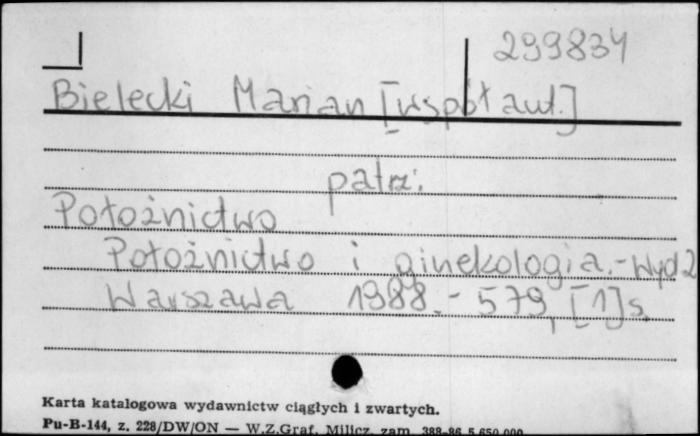 299834
Bielecki Marian [współaut.]
patrz:
Położnictwo
Położnictwo i ginekologia.- Wyd 2
Warszawa 1988.- 579, [1] s.
Karta katalogowa wydawnictw ciągłych i zwartych.
Pu-B-144, z. 228/DW/ON — W.Z.Graf. Milicz, zam. 388-86 5.650.000